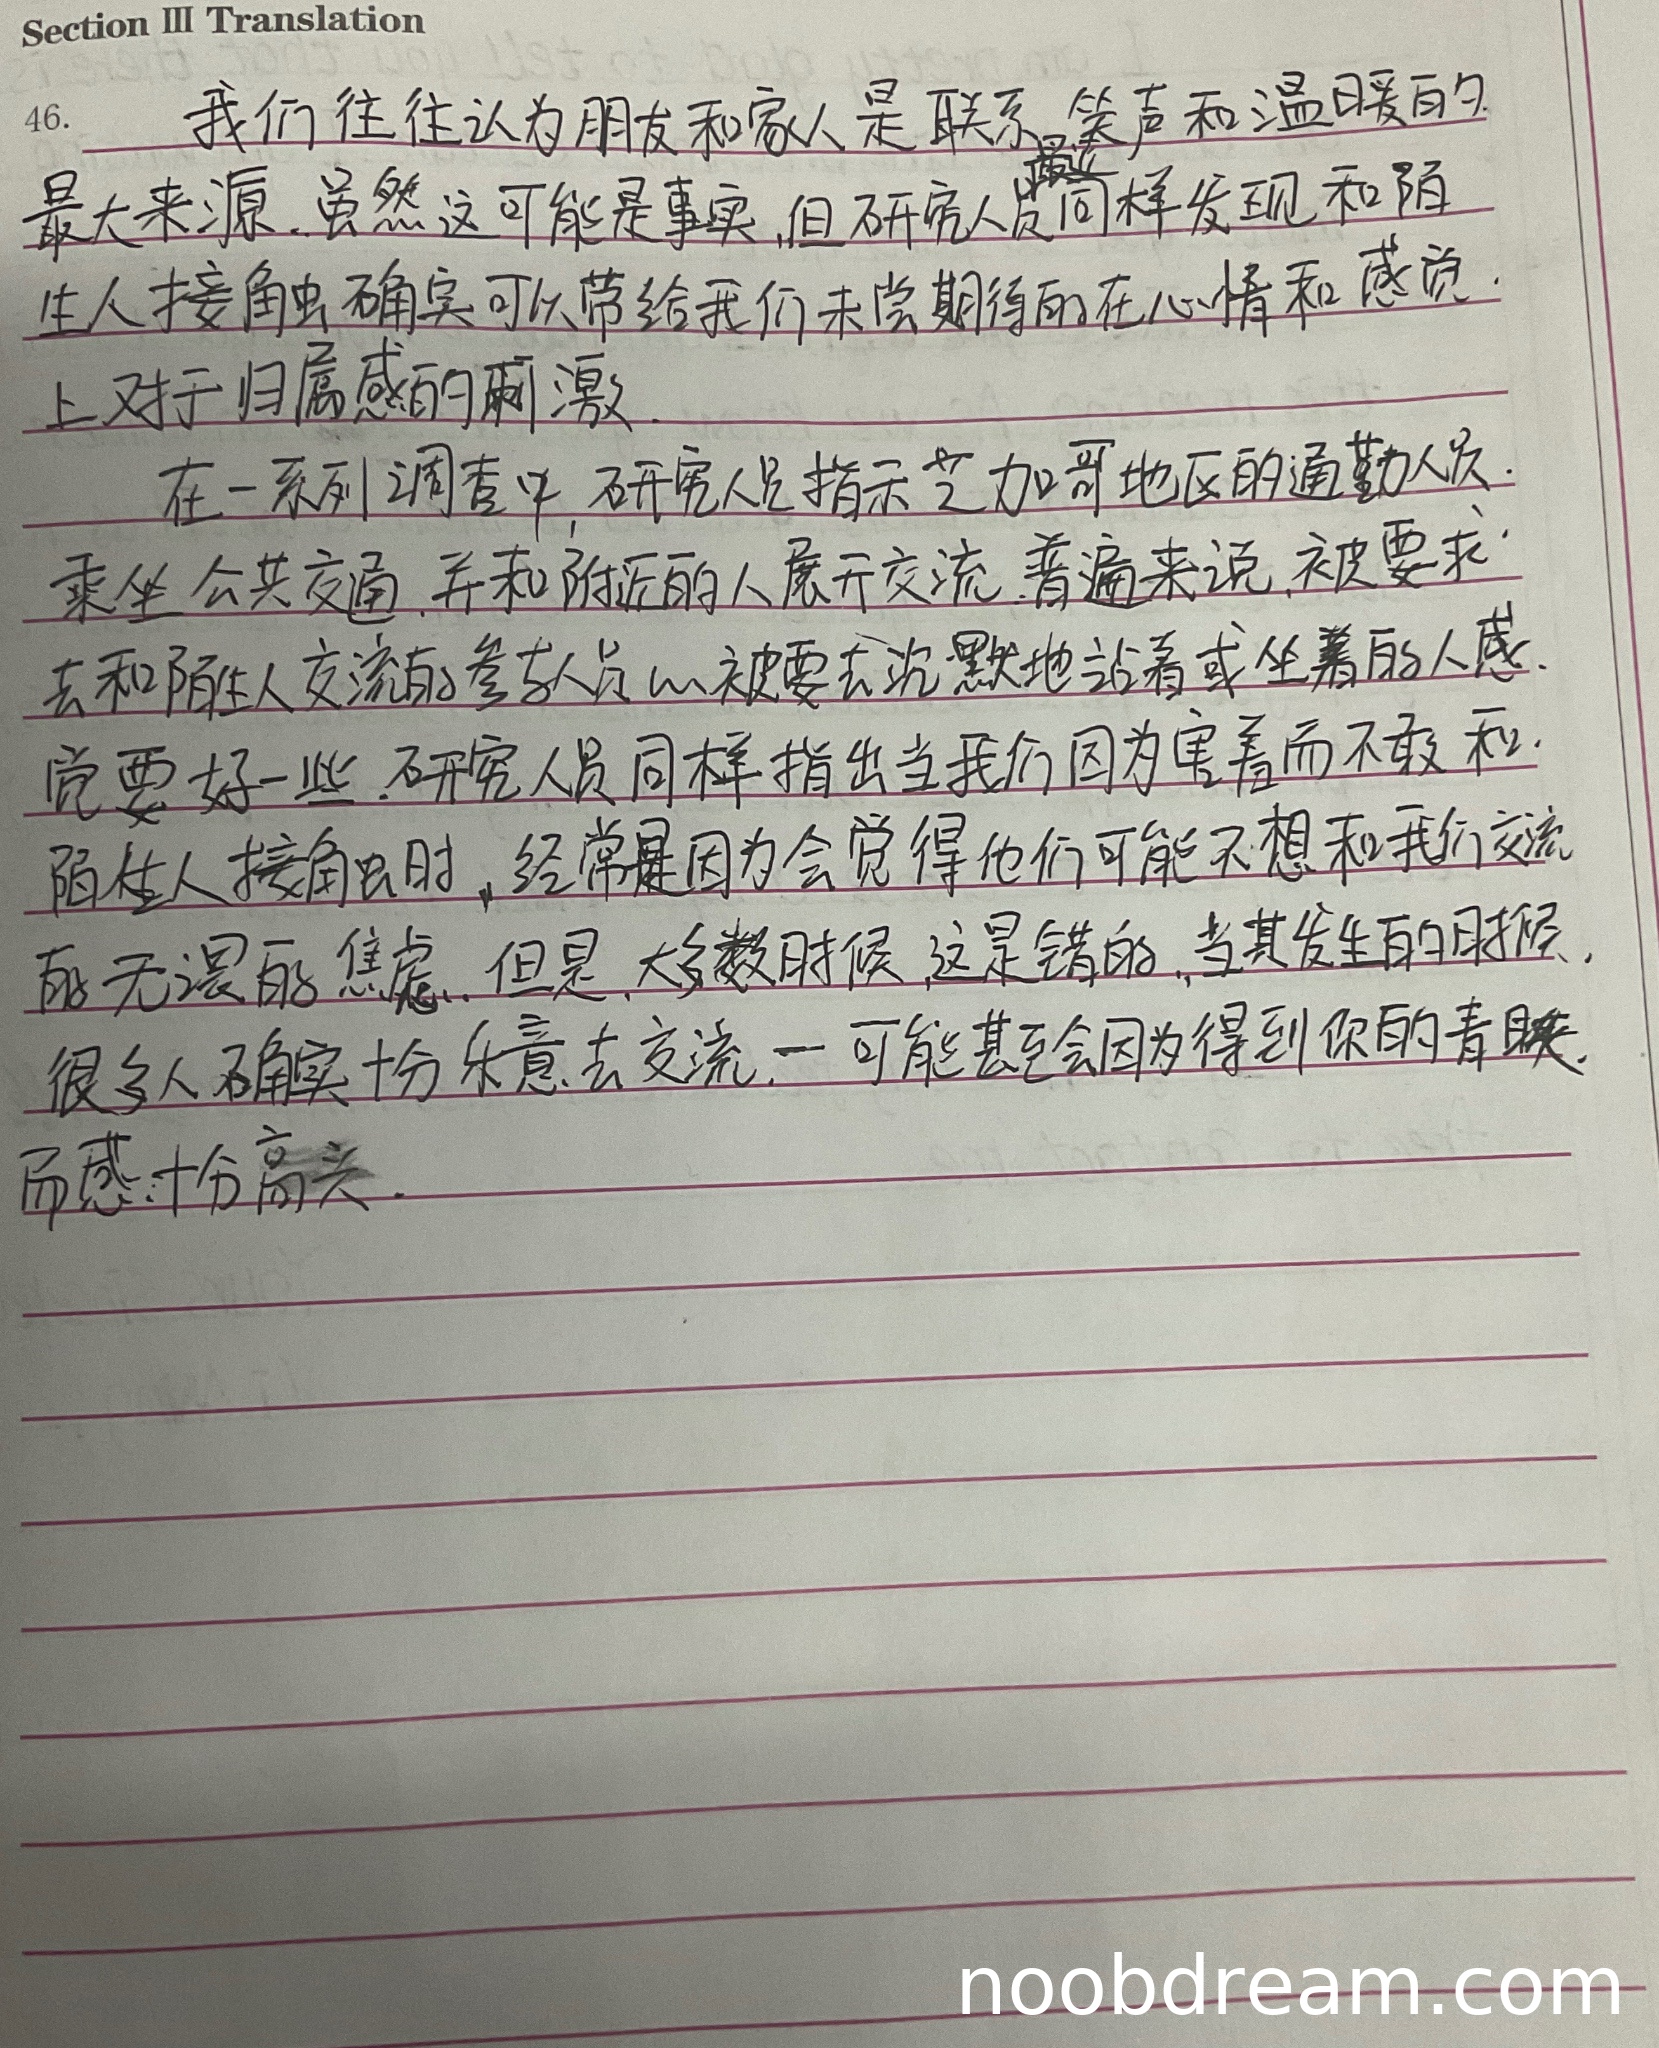 Section III Translation
46. 我们往往认为朋友和家人是联系、笑声和温暖的
最大来源.虽然这可能是事实,但研究人员最近同样发现和陌
生人接触确实可以带给我们未尝期待的在心情和感觉
上对于归属感的刺激.
在一系列调查中,研究人员指示芝加哥地区的通勤人员
乘坐公共交通,并和附近的人展开交流.普遍来说,被要求
去和陌生人交流的参与人员比被要去沉默地站着或坐着的人感
觉要好一些.研究人员同样指出当我们因为害羞而不敢和
陌生人接触时,经常是因为会觉得他们可能不想和我们交流
的无谓的焦虑.但是,大多数时候,这是错的,当其发生的时候,
很多人确实十分乐意去交流.一可能甚至会因为得到你的青睐
而感十分高兴.
noobdream.com